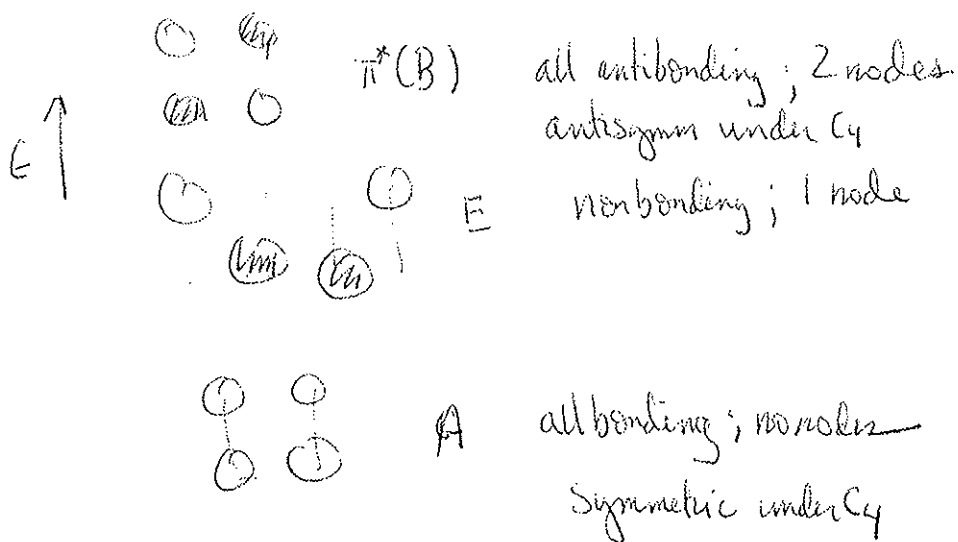 π*(B) all antibonding; 2 nodes
antisymm under C4
E
E nonbonding; 1 node
A all bonding; no nodes
symmetric under C4